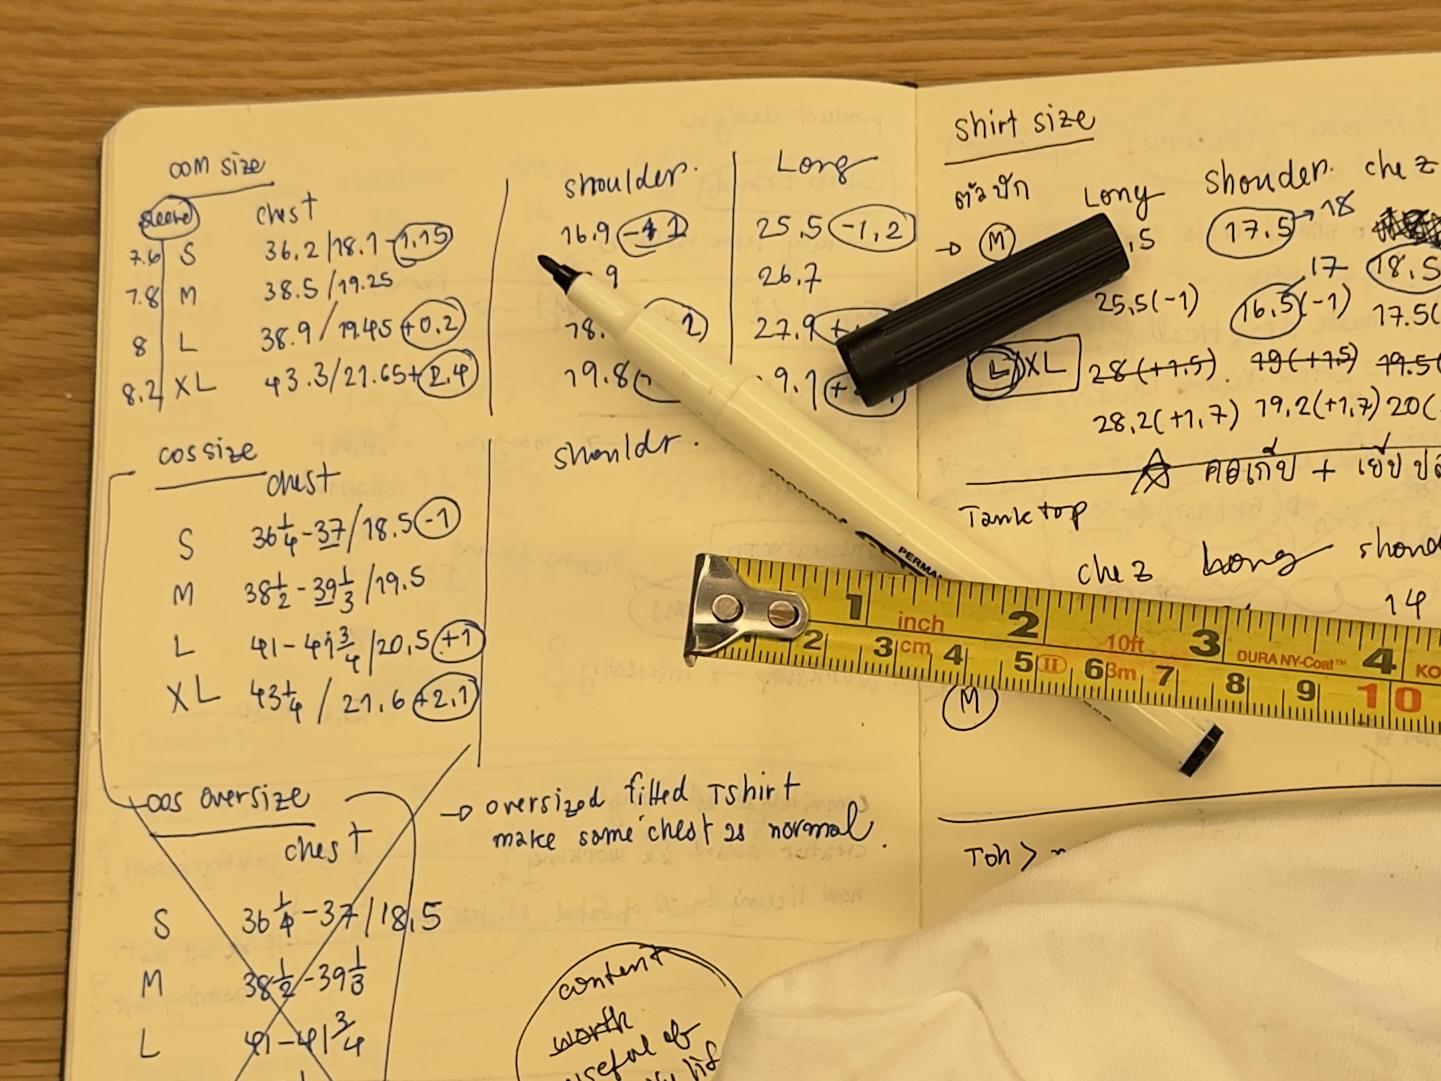 OOM size
sleeve chest
7.6 S 36.2/18.1 -1,15
7.8 M 38.5/19.25
8 L 38.9/19.45 +0.2
8.2 XL 43.3/21.65+2.4
shoulder.
16.9
9
78.
19.8
Long
25.5 -1,2
26.7
27.9
9.1
cos size
chest
S 36 1/4 - 37/18.5 -1
M 38 1/2 - 39 1/3 /19.5
L 41 - 41 3/4 /20,5 +1
XL 43 1/4 / 21.6 +2,1
shouldr.
cos oversize
chest
S 36 1/4 - 37/18,5
M 38 1/2 - 39 1/3
L 41 - 41 3/4
→ oversized fitted Tshirt
make some chest as normal.
content
worth
useful of
Shirt size
Long shouder. chez
→ M ,5 17.5 → 18
17 18,5
25,5(-1) 16,5 (-1) 17.5(
L XL 28(+1,5). 19(+1,5) 19.5(
28,2(+1,7) 19,2(+1,7) 20(
Tank top
chez Long
14
M
PERMA
1 inch 2 10ft 3 DURA NY-Coat™ 4 KO
1 2 3 cm 4 5 II 6 3m 7 8 9 10